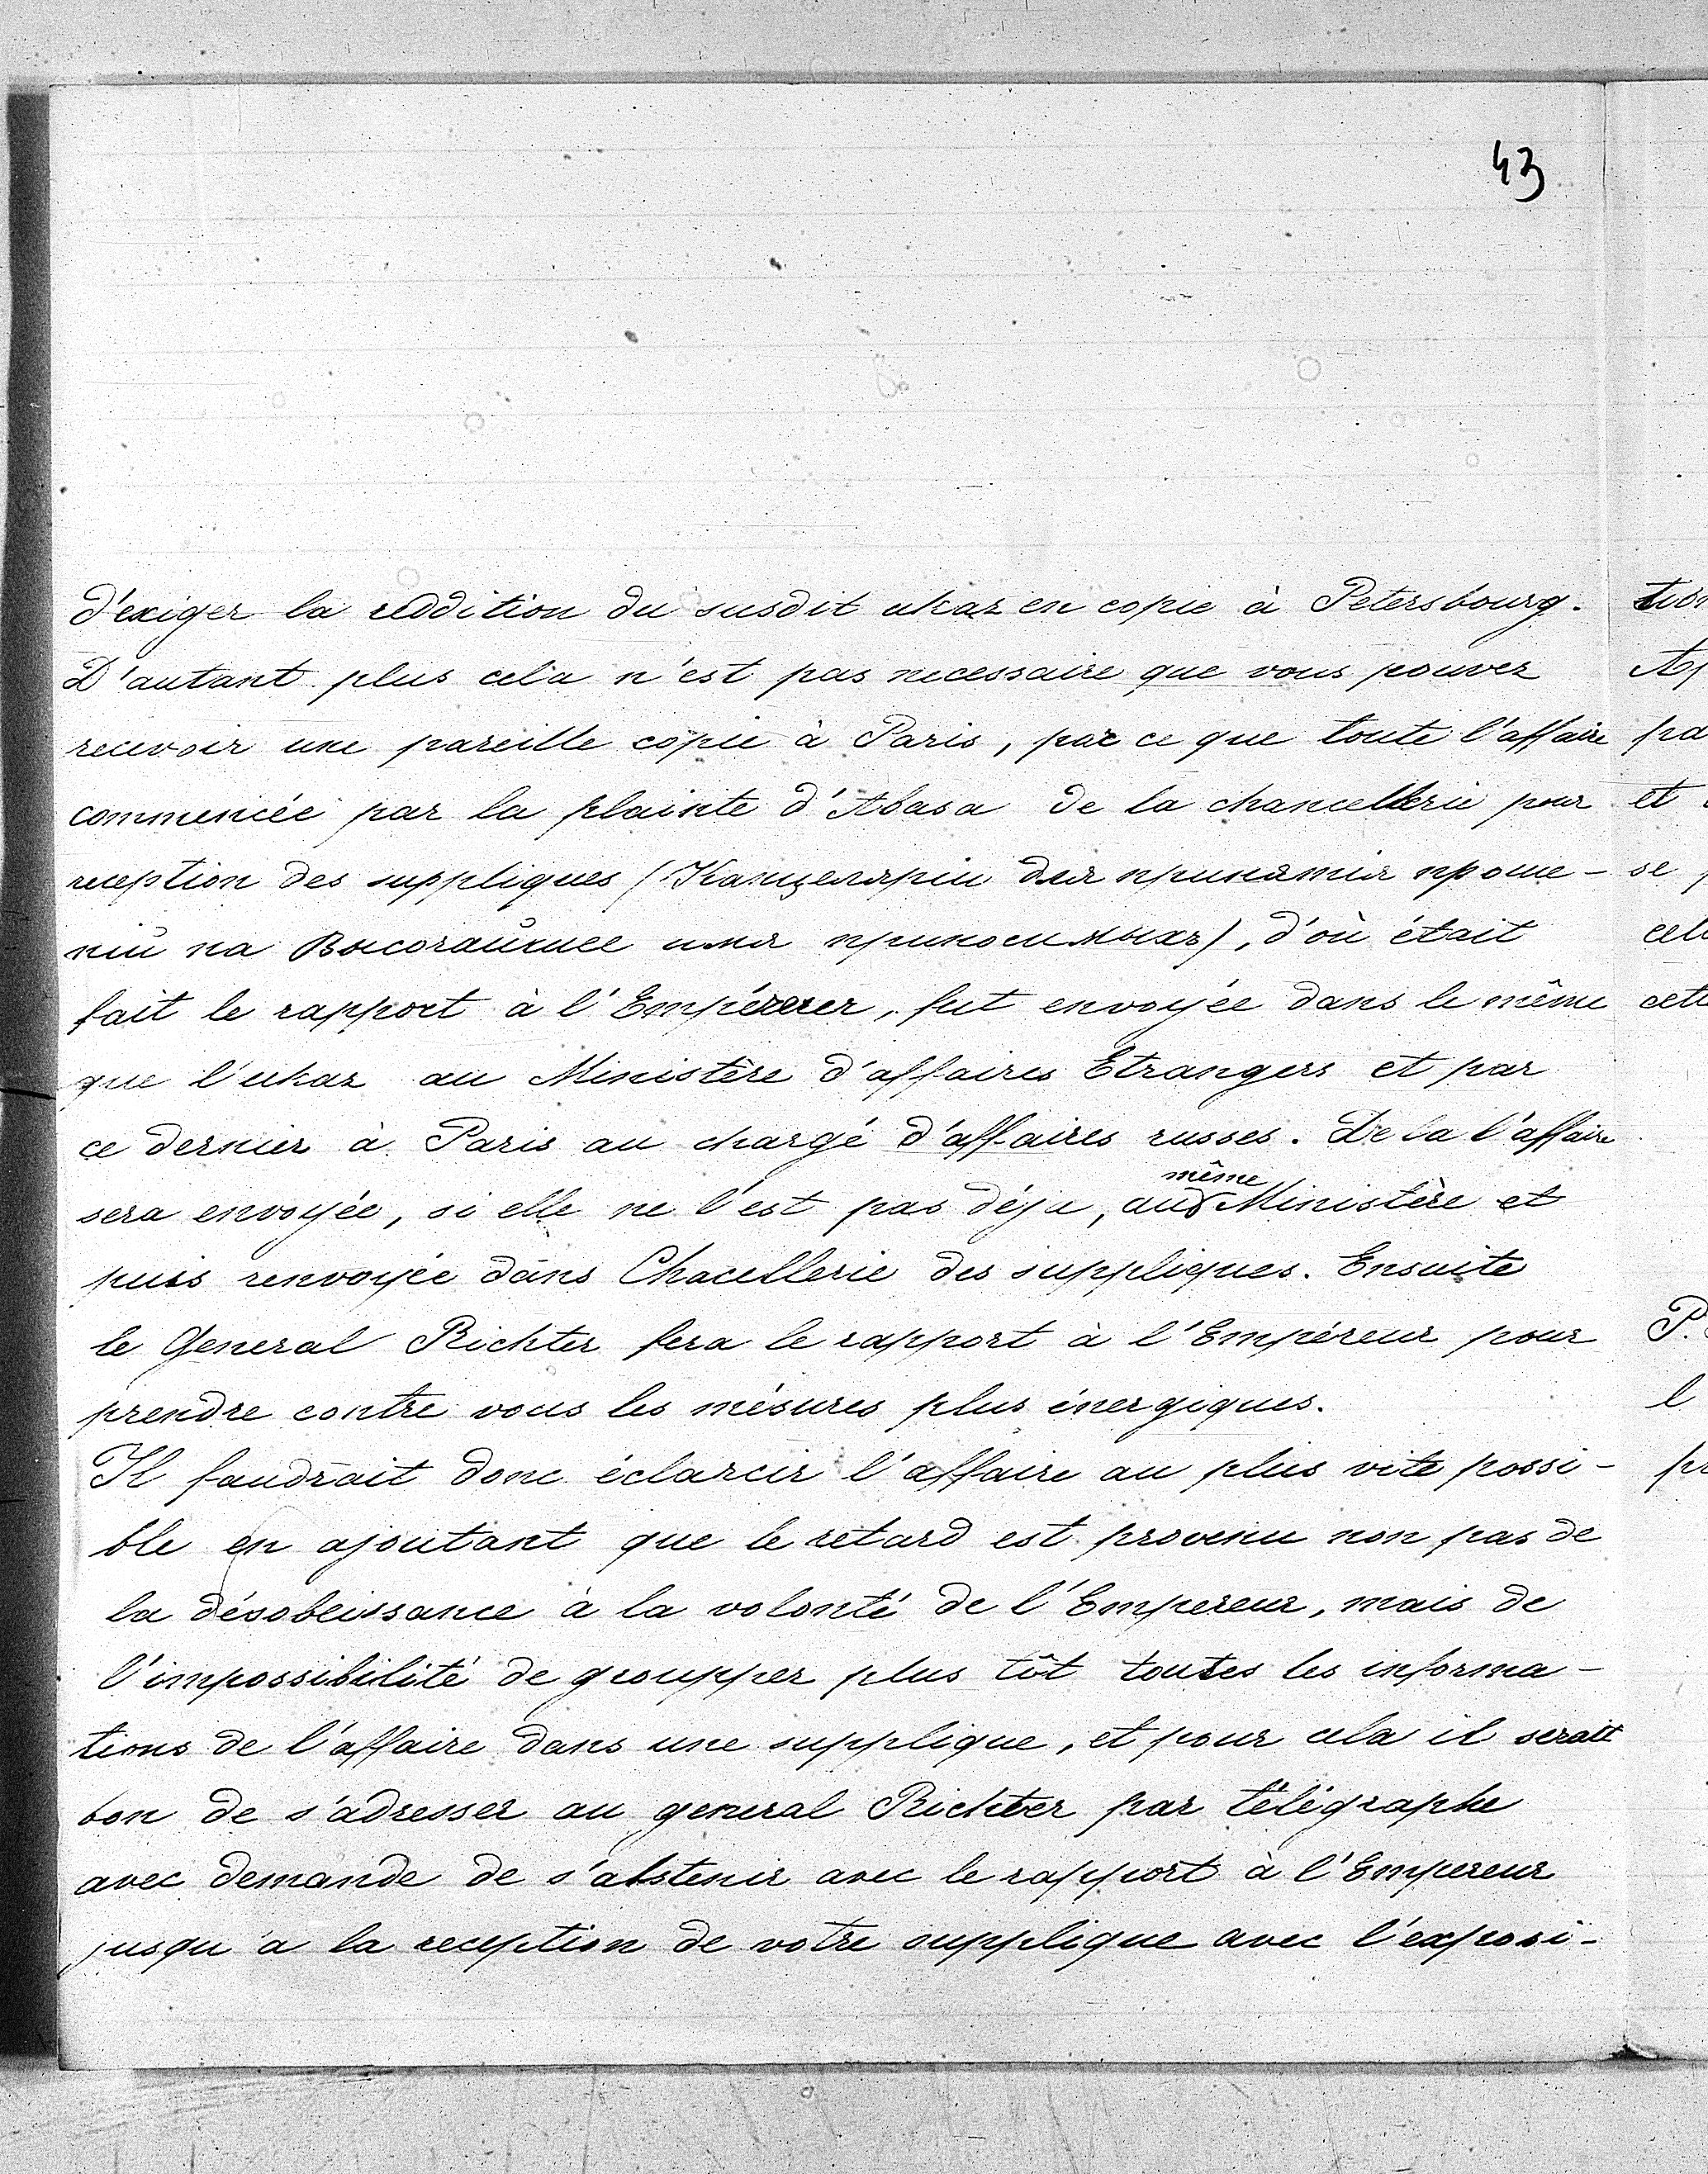 43
d'exiger la reddition du susdit ukaz en copie à Petersbourg.
D'autant plus cela n'est pas necessaire que vous pouvez
recevoir une pareille copie à Paris, par ce que toute l'affaire
commencée par la plainte d'Abasa de la chancellerie pour
reception des suppliques (Канцелярiи для принятiя проше-
нiй на Высочайшее имя приносимыхъ), d'où était
fait le rapport à l'Empéreur, fut envoyée dans le même
que l'ukaz au Ministère d'affaires Etrangers et par
ce dernier à Paris au chargé d'affaires russes. De la l'affaire
sera envoyée, si elle ne l'est pas déja, au même Ministère et
puis renvoyée dans Chacellerie des suppliques. Ensuite
le General Richter fera le rapport à l'Empéreur pour
prendre contre vous les mésures plus énergiques.
Il faudrait donc éclarcir l'affaire au plus vite possi-
ble en ajoutant que le retard est provenu non pas de
la désobeissance à la volonté de l'Empereur, mais de
l'impossibilité de groupper plus tôt toutes les informa-
tions de l'affaire dans une supplique, et pour cela il serait
bon de s'adresser au general Richter par télégraphe
avec demande de s'abstenir avec le rapport à l'Empereur
jusqu'a la reception de votre supplique avec l'exposi-